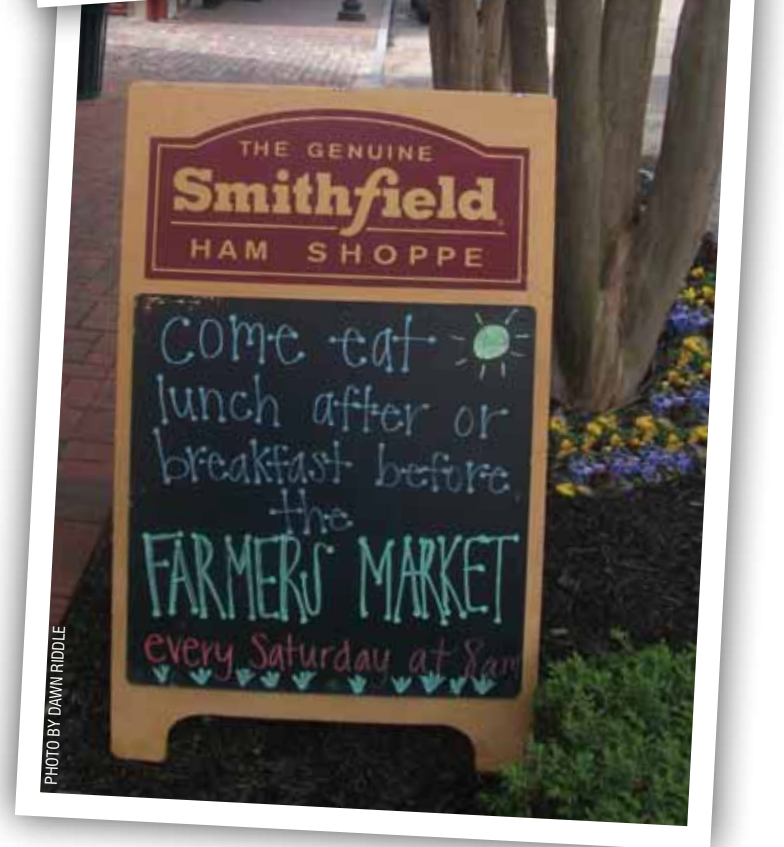 THE GENUINE
Smithfield
HAM SHOPPE
come eat
lunch after or
breakfast before
the
FARMERS MARKET
every Saturday at 8am
PHOTO BY DAWN RIDDLE